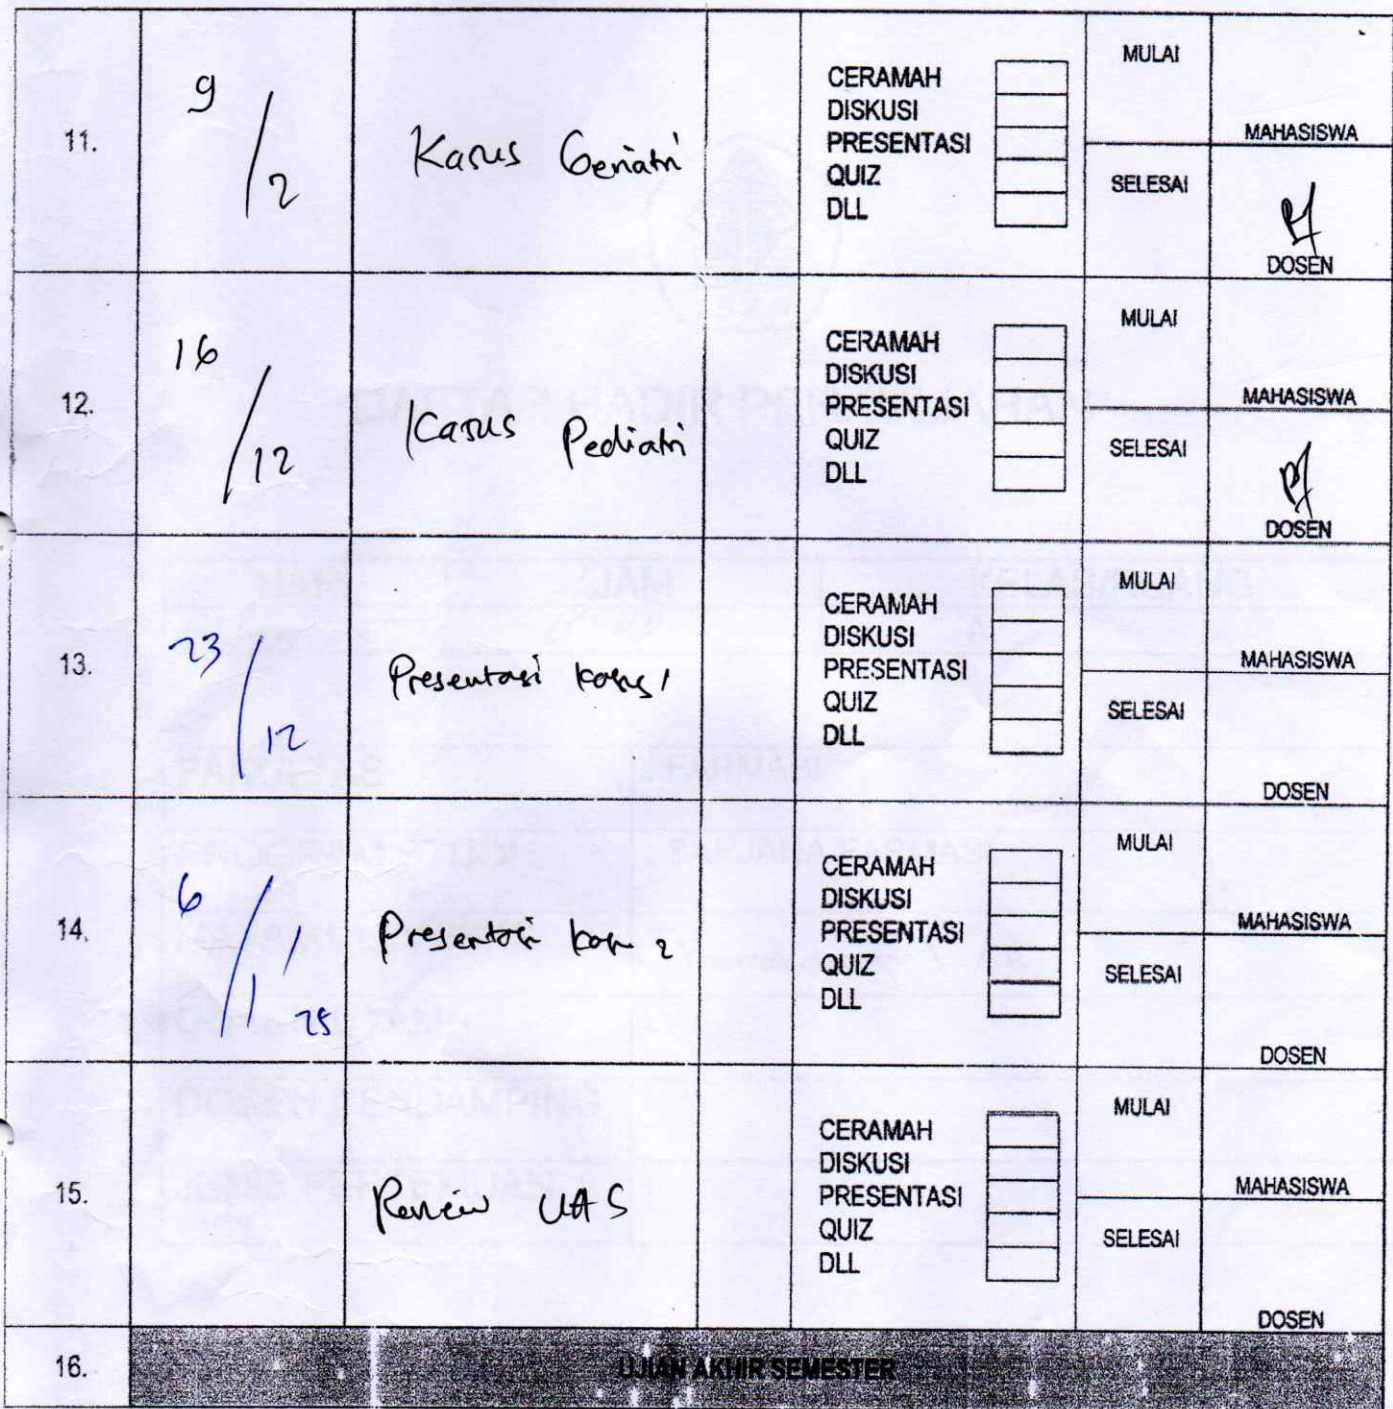 11.
9/2
Kasus Geriatri
CERAMAH
DISKUSI
PRESENTASI
QUIZ
DLL
MULAI
SELESAI
MAHASISWA
DOSEN
12.
16/12
Kasus Pediatri
CERAMAH
DISKUSI
PRESENTASI
QUIZ
DLL
MULAI
SELESAI
MAHASISWA
DOSEN
13.
23/12
Presentasi kasus 1
CERAMAH
DISKUSI
PRESENTASI
QUIZ
DLL
MULAI
SELESAI
MAHASISWA
DOSEN
14.
6/1/25
Presentasi 2
CERAMAH
DISKUSI
PRESENTASI
QUIZ
DLL
MULAI
SELESAI
MAHASISWA
DOSEN
15.
Review UAS
CERAMAH
DISKUSI
PRESENTASI
QUIZ
DLL
MULAI
SELESAI
MAHASISWA
DOSEN
16.
UJIAN AKHIR SEMESTER